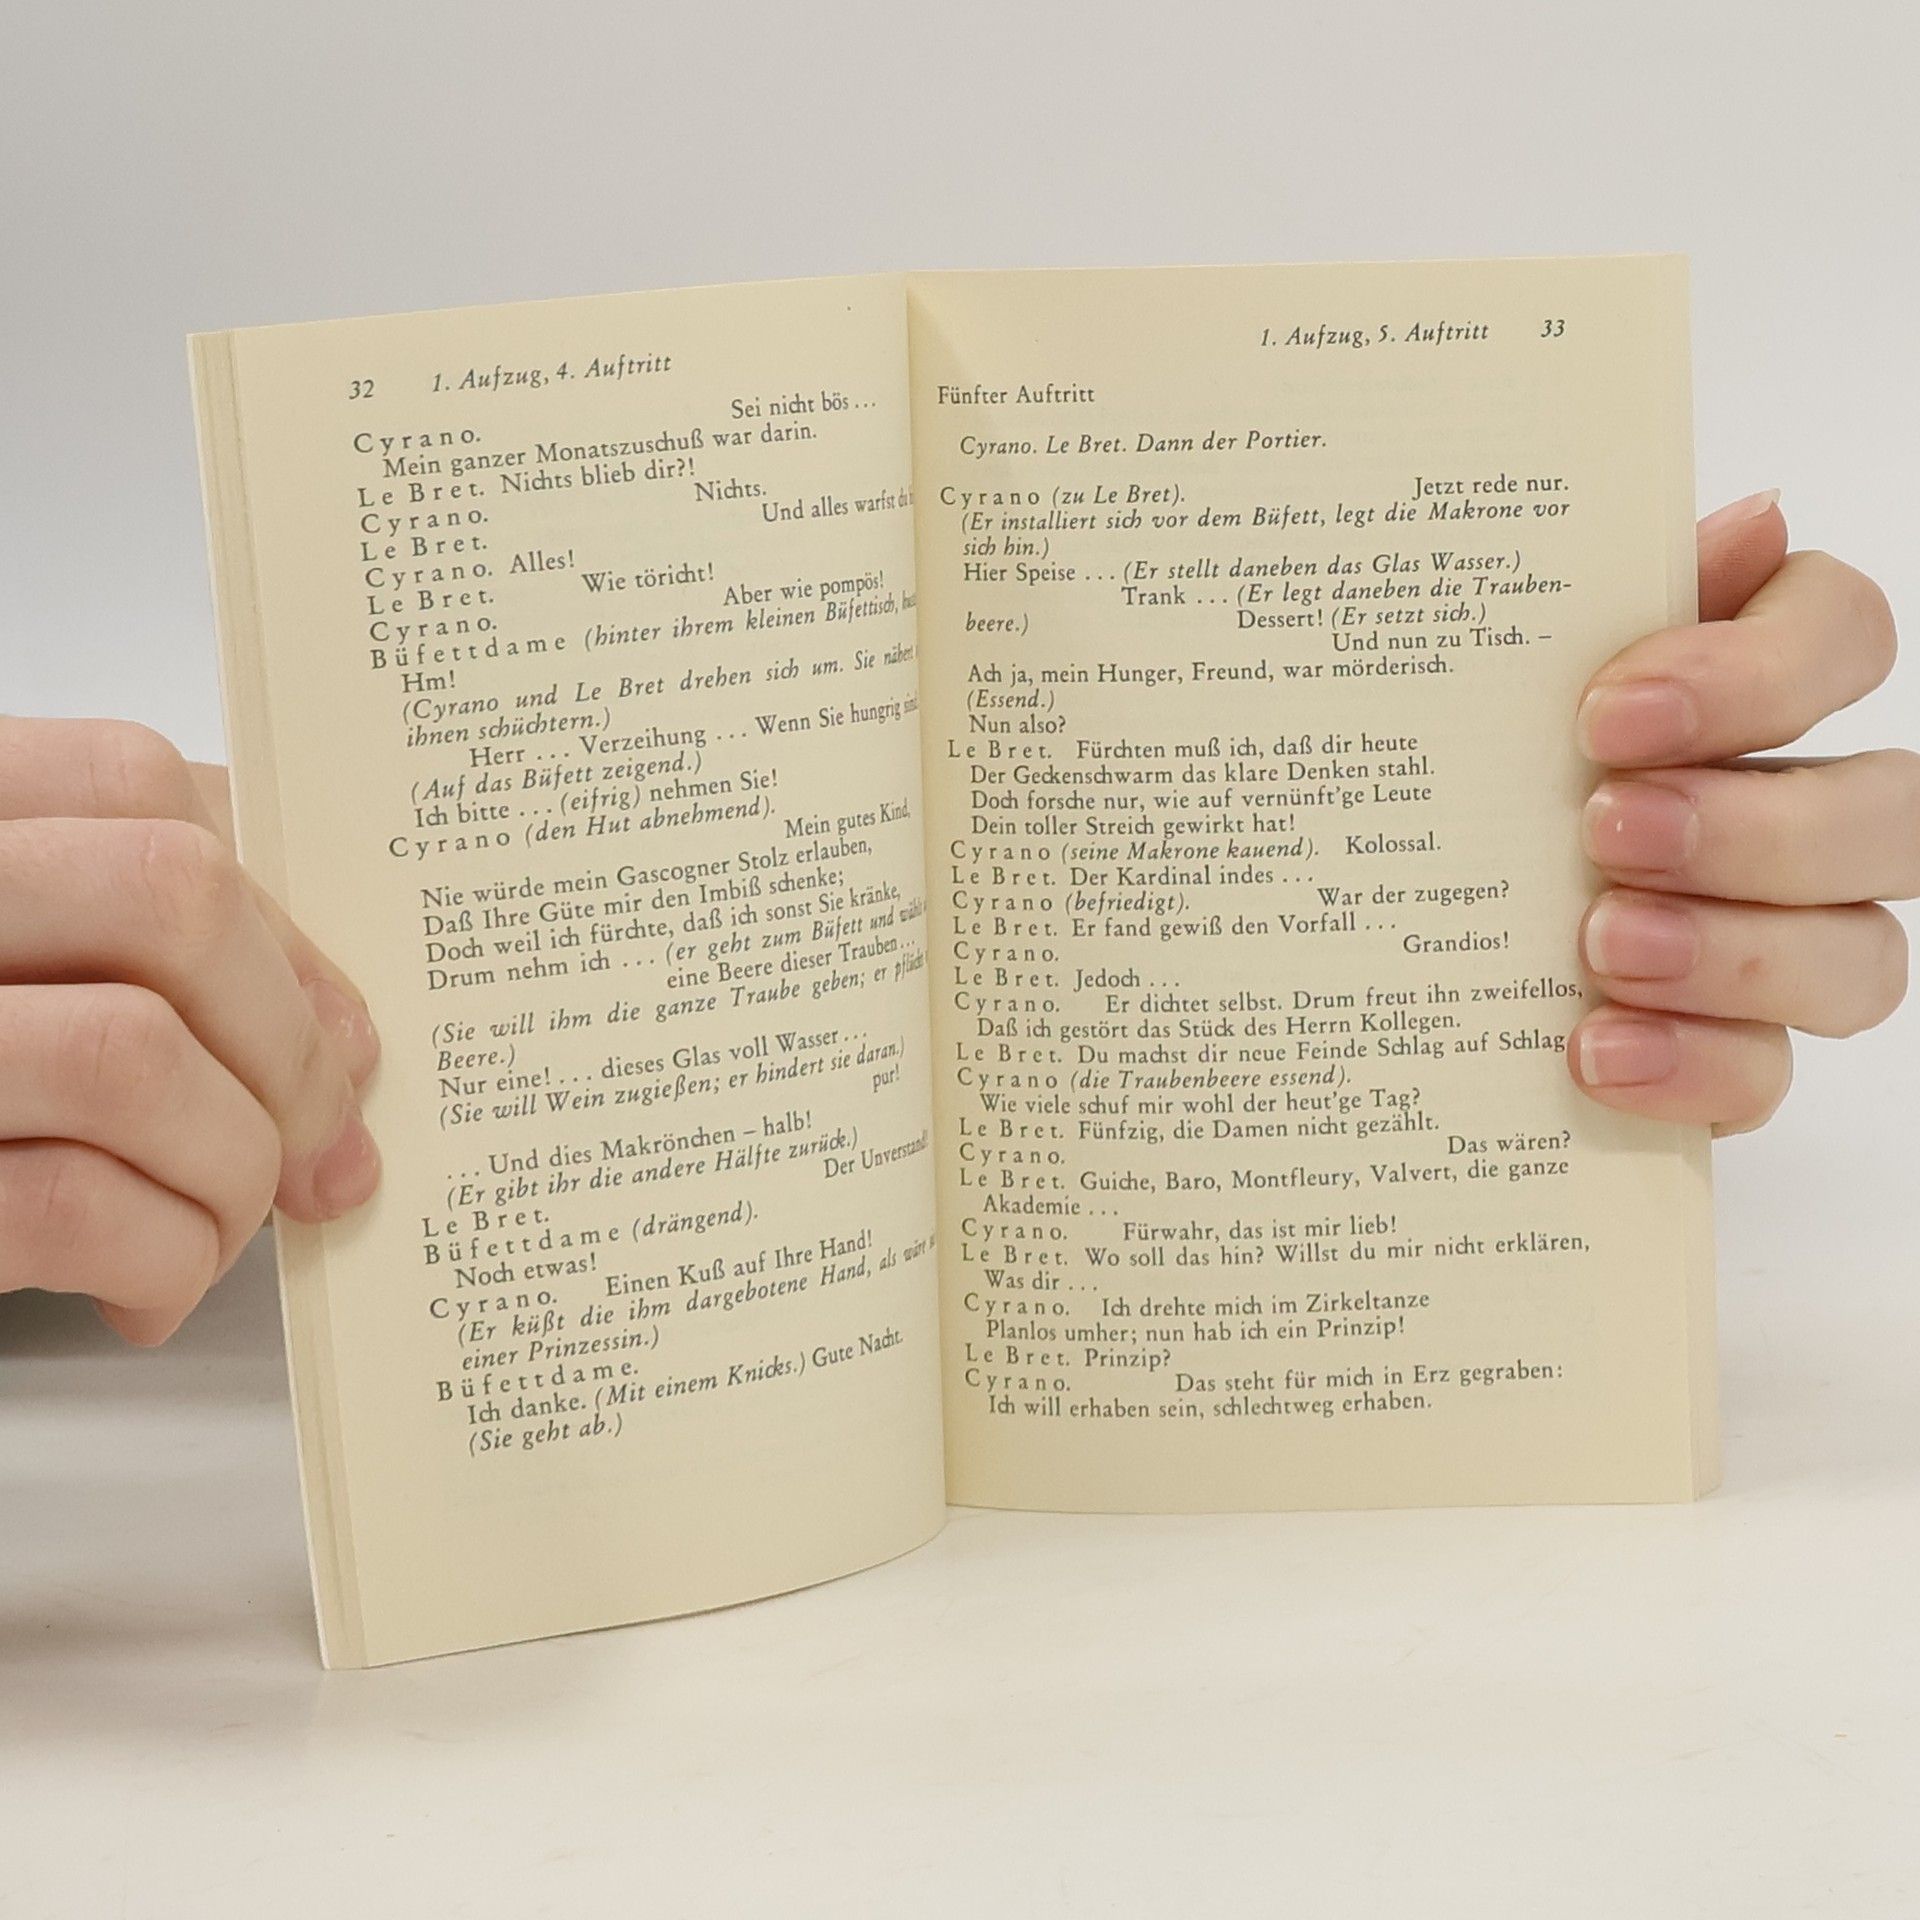 32 1. Aufzug, 4. Auftritt
Cyrano. Sei nicht bös ...
Mein ganzer Monatszuschuß war darin.
Le Bret. Nichts blieb dir?!
Cyrano. Nichts.
Le Bret. Und alles warfst du
Cyrano. Alles!
Le Bret. Wie töricht!
Cyrano. Aber wie pompös!
Büfettdame (hinter ihrem kleinen Büfettisch,
Hm!
(Cyrano und Le Bret drehen sich um. Sie nähert
ihnen schüchtern.)
Herr ... Verzeihung ... Wenn Sie hungrig sind
(Auf das Büfett zeigend.)
Ich bitte ... (eifrig) nehmen Sie!
Cyrano (den Hut abnehmend).
Mein gutes Kind,
Nie würde mein Gascogner Stolz erlauben,
Daß Ihre Güte mir den Imbiß schenke;
Doch weil ich fürchte, daß ich sonst Sie kränke,
Drum nehm ich ... (er geht zum Büfett und wählt
eine Beere dieser Trauben ...
(Sie will ihm die ganze Traube geben; er pflückt
Beere.)
Nur eine! ... dieses Glas voll Wasser ...
(Sie will Wein zugießen; er hindert sie daran.)
pur!
... Und dies Makrönchen – halb!
(Er gibt ihr die andere Hälfte zurück.)
Le Bret. Der Unverstand!
Büfettdame (drängend).
Noch etwas!
Cyrano. Einen Kuß auf Ihre Hand!
(Er küßt die ihm dargebotene Hand, als wär
einer Prinzessin.)
Büfettdame.
Ich danke. (Mit einem Knicks.) Gute Nacht.
(Sie geht ab.)
1. Aufzug, 5. Auftritt 33
Fünfter Auftritt
Cyrano. Le Bret. Dann der Portier.
Cyrano (zu Le Bret). Jetzt rede nur.
(Er installiert sich vor dem Büfett, legt die Makrone vor
sich hin.)
Hier Speise ... (Er stellt daneben das Glas Wasser.)
Trank ... (Er legt daneben die Trauben-
beere.) Dessert! (Er setzt sich.)
Und nun zu Tisch. –
Ach ja, mein Hunger, Freund, war mörderisch.
(Essend.)
Nun also?
Le Bret. Fürchten muß ich, daß dir heute
Der Geckenschwarm das klare Denken stahl.
Doch forsche nur, wie auf vernünft'ge Leute
Dein toller Streich gewirkt hat!
Cyrano (seine Makrone kauend). Kolossal.
Le Bret. Der Kardinal indes ...
Cyrano (befriedigt). War der zugegen?
Le Bret. Er fand gewiß den Vorfall ...
Cyrano. Grandios!
Le Bret. Jedoch ...
Cyrano. Er dichtet selbst. Drum freut ihn zweifellos,
Daß ich gestört das Stück des Herrn Kollegen.
Le Bret. Du machst dir neue Feinde Schlag auf Schlag
Cyrano (die Traubenbeere essend).
Wie viele schuf mir wohl der heut'ge Tag?
Le Bret. Fünfzig, die Damen nicht gezählt.
Cyrano. Das wären?
Le Bret. Guiche, Baro, Montfleury, Valvert, die ganze
Akademie ...
Cyrano. Fürwahr, das ist mir lieb!
Le Bret. Wo soll das hin? Willst du mir nicht erklären,
Was dir ...
Cyrano. Ich drehte mich im Zirkeltanze
Planlos umher; nun hab ich ein Prinzip!
Le Bret. Prinzip?
Cyrano. Das steht für mich in Erz gegraben:
Ich will erhaben sein, schlechtweg erhaben.